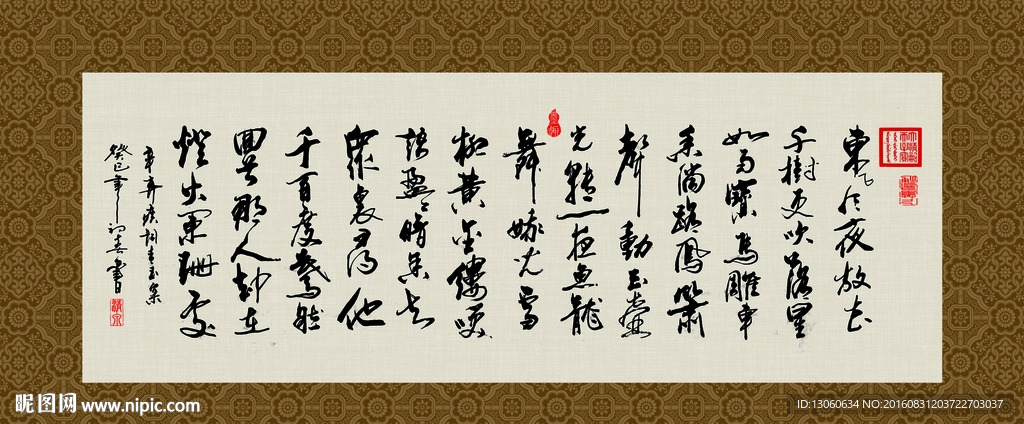 東風夜放花
千樹更吹落星
如雨寶馬雕車
香滿路鳳簫
聲動玉壺
光轉一夜魚龍
舞蛾兒雪
柳黃金縷笑
語盈盈暗香去
眾裏尋他
千百度驀然
回首那人卻在
燈火闌珊處
辛弃疾詞青玉案
癸巳年初春書
昵图网 www.nipic.com
ID:13060634 NO:20160831203722703037